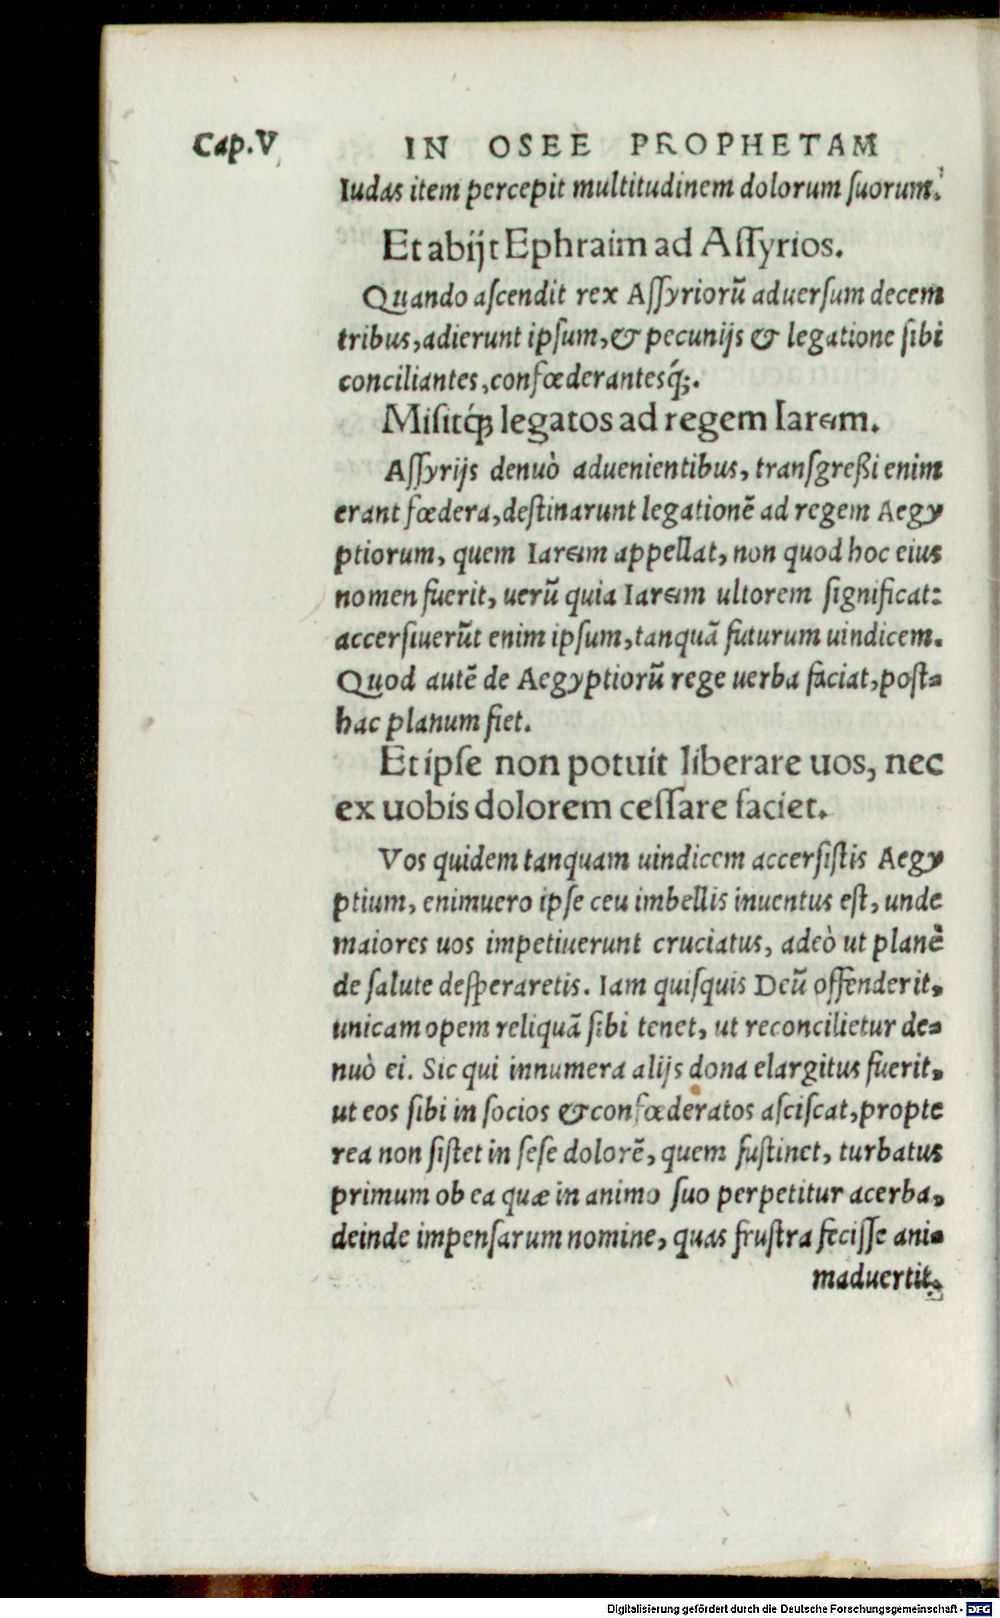 Cap.V IN OSEE PROPHETAM
Iudas item percepit multitudinem dolorum ſuorum.
Et abijt Ephraim ad Aſſyrios.
Quando aſcendit rex Aſſyriorū aduerſum decem
tribus, adierunt ipſum, & pecunijs & legatione ſibi
conciliantes, confœderantesq́;.
Miſitq́ꝫ legatos ad regem Iaram.
Aſſyrijs denuò aduenientibus, tranſgreßi enim
erant fœdera, deſtinarunt legationē ad regem Aegy
ptiorum, quem Iaram appellat, non quod hoc eius
nomen fuerit, uerū quia Iaram ultorem ſignificat:
accerſiuerūt enim ipſum, tanquā futurum uindicem.
Quod autē de Aegyptiorū rege uerba faciat, poſt-
hac planum fiet.
Et ipſe non potuit liberare uos, nec
ex uobis dolorem ceſſare faciet.
Vos quidem tanquam uindicem accerſiſtis Aegy
ptium, enimuero ipſe ceu imbellis inuentus eſt, unde
maiores uos impetiuerunt cruciatus, adeò ut planè
de ſalute deſperaretis. Iam quiſquis Deū offenderit,
unicam opem reliquā ſibi tenet, ut reconcilietur de-
nuò ei. Sic qui innumera alijs dona elargitus fuerit,
ut eos ſibi in ſocios & confœderatos aſciſcat, propte
rea non ſiſtet in ſeſe dolorē, quem ſuſtinet, turbatus
primum ob ea quæ in animo ſuo perpetitur acerba,
deinde impenſarum nomine, quas fruſtra feciſſe ani-
maduertit.
Digitalisierung gefördert durch die Deutsche Forschungsgemeinschaft - DFG